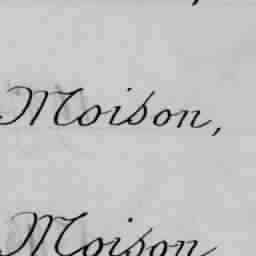 Moison,
Moison